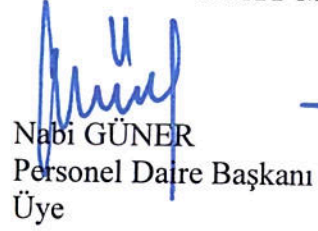 Nabi GÜNER
Personel Daire Başkanı
Üye